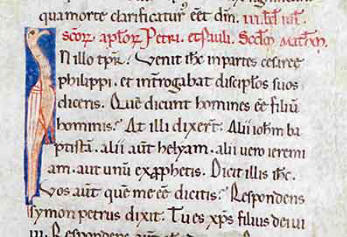 qua morte clarificatur' eēt dm̄. iii. kł iuł.
scōꝝ. apłoꝝ Petri. et Pauli. Scđm Mathm̄.
In illo tp̄r. Venit ihc̄ in partes cesaree
philippi. et int̄rogabat discip̄los suos
dicens. Quē dicunt homines eē filiū
hominis? At illi dixer̄t. Alii ioh̄m ba
ptistā. alii aūt helyam. alii vero ieremi
am. aut unū ex ꝓphetis. Dicit illis ihc̄.
Vos aūt quē me eē dicitis? Respondens
symon petrus dixit. Tu es xp̄s filius dei vi
ui. Respondens